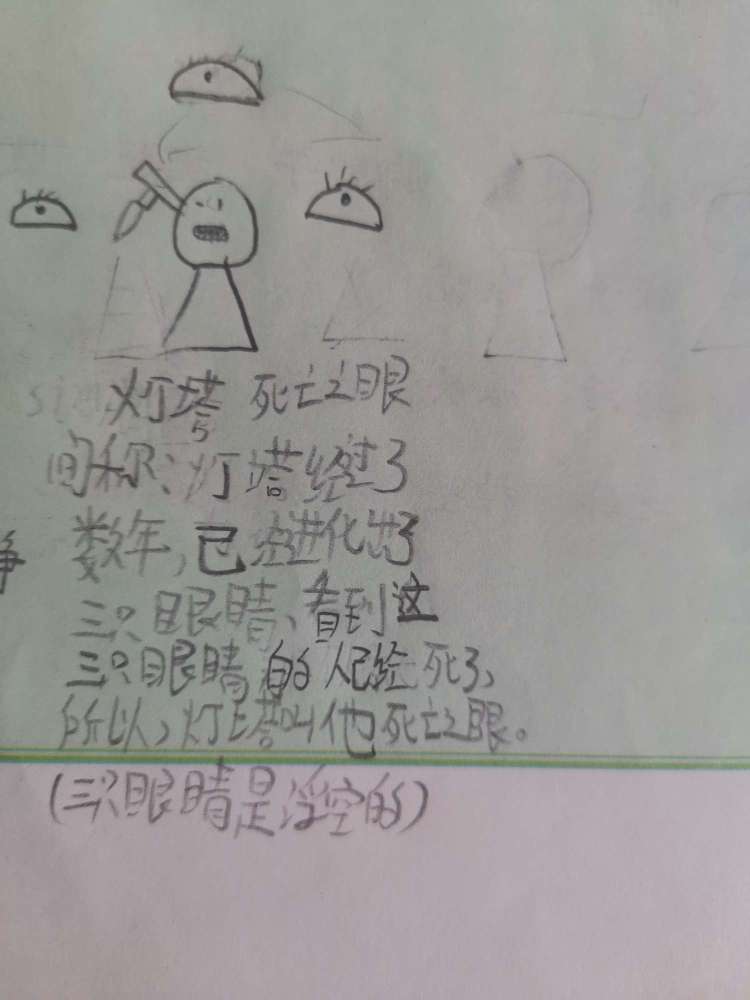 灯塔 死亡之眼
间称：灯塔经过了
数年，已经进化出了
三只眼睛、看到这
三只眼睛的人已经死了、
所以，灯塔叫他死亡之眼。
(三只眼睛是浮空的)